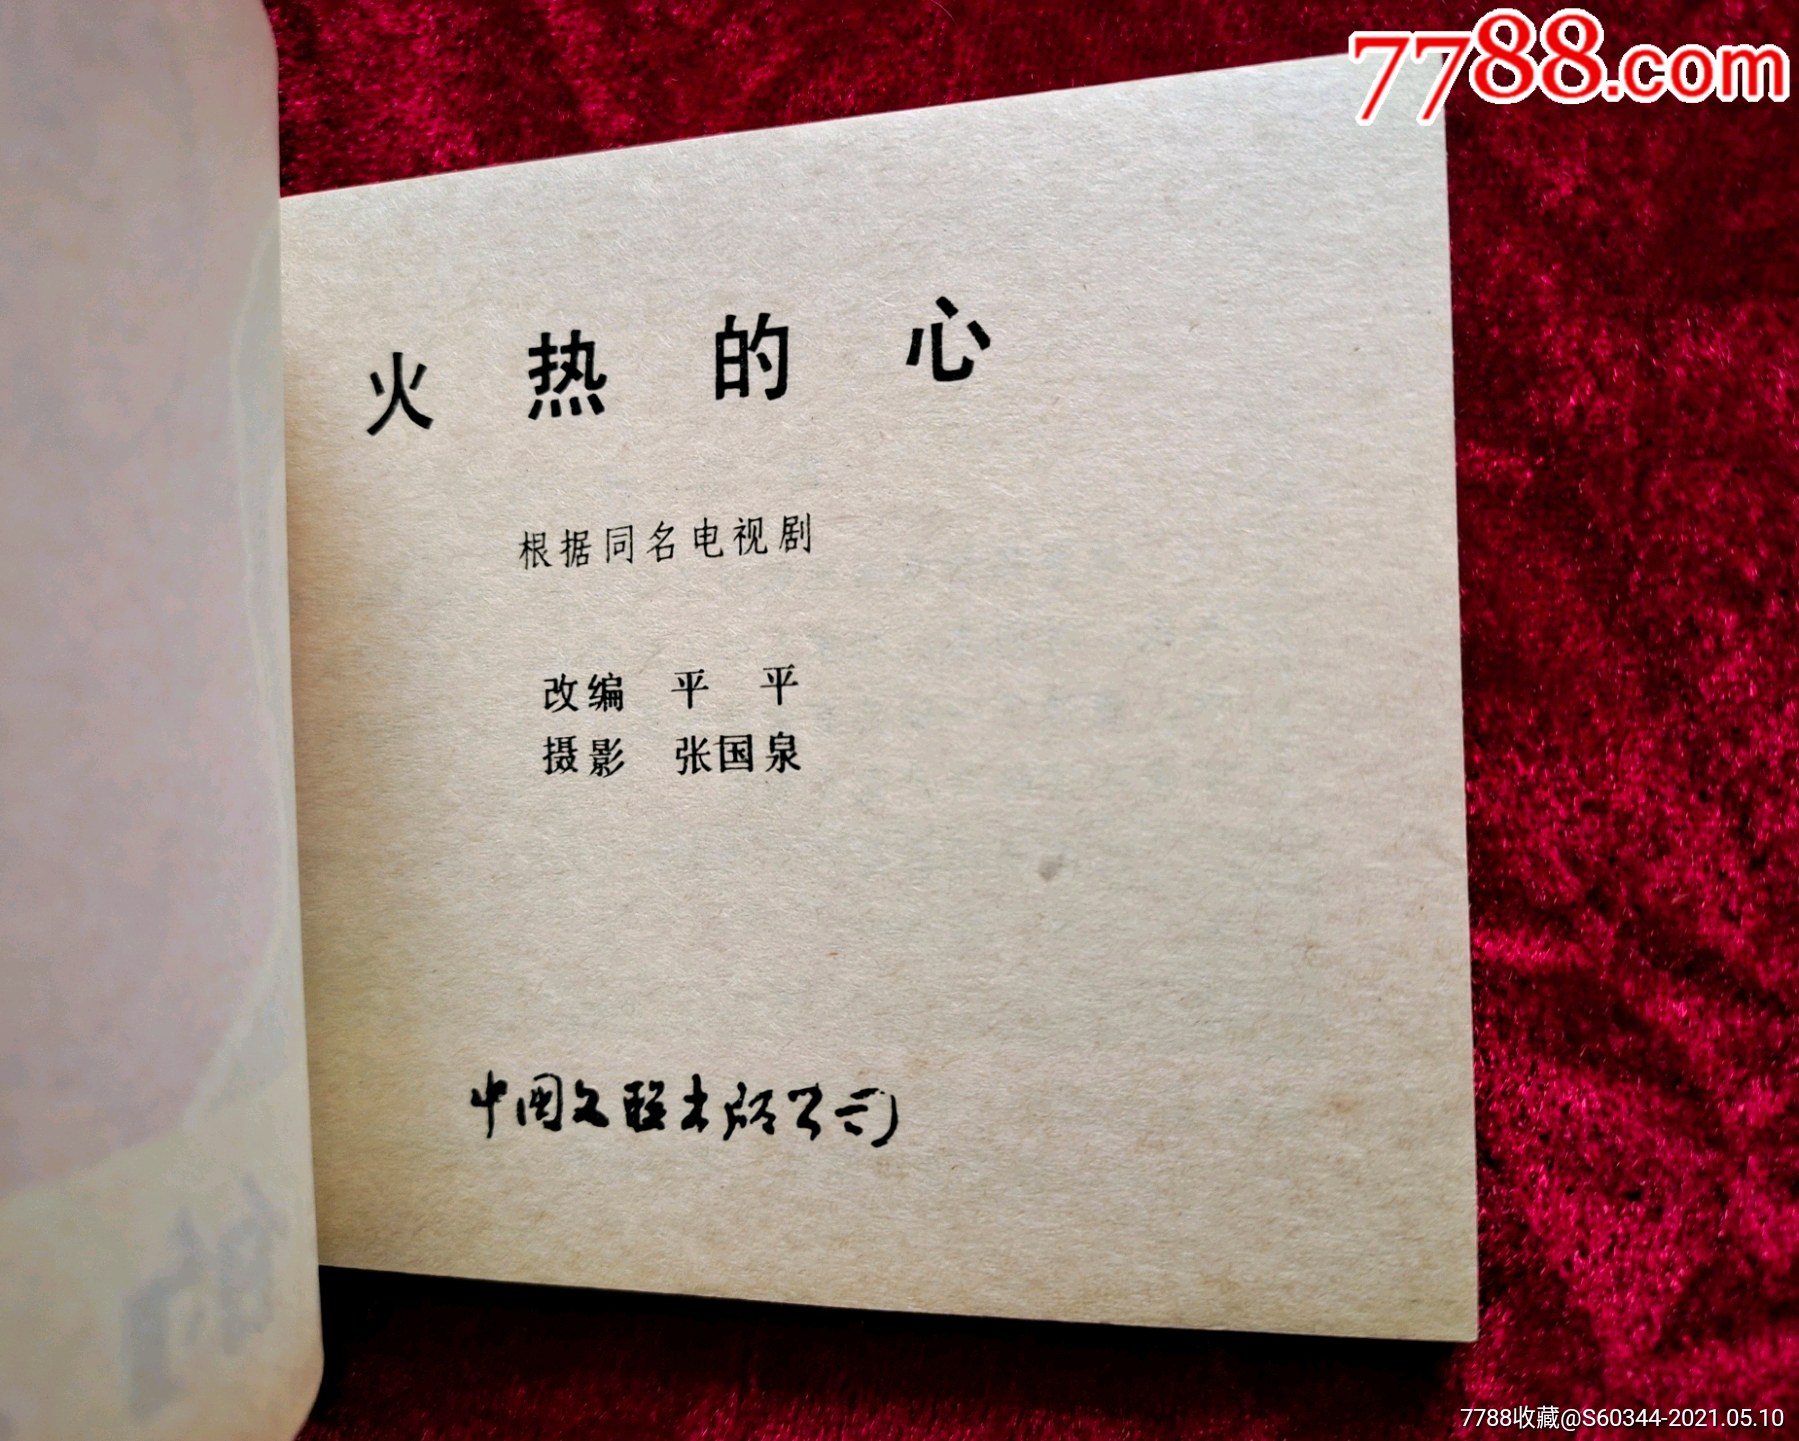 7788.com
火热的心
根据同名电视剧
改编 平 平
摄影 张国泉
中国文联出版公司
7788收藏@S60344-2021.05.10